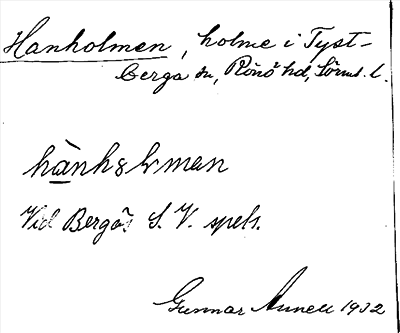 Hanholmen, holme i Tyst-
berga sn, Rönö hd, Sörml. l.
Vid Bergös S. V. spets.
Gunnar Annell 1932